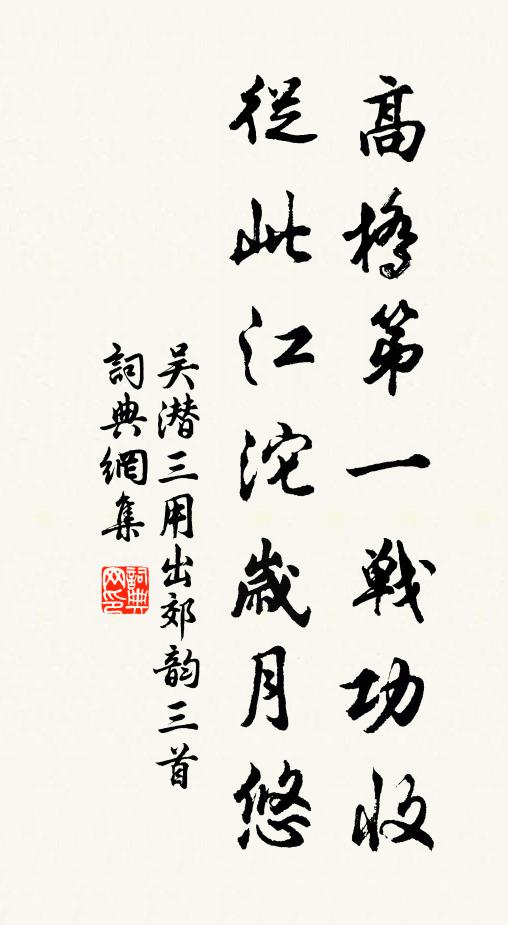 高橋第一戰功收
從此江沱歲月悠
吴潜三用出郊韵三首
詞典網集
詞典网印